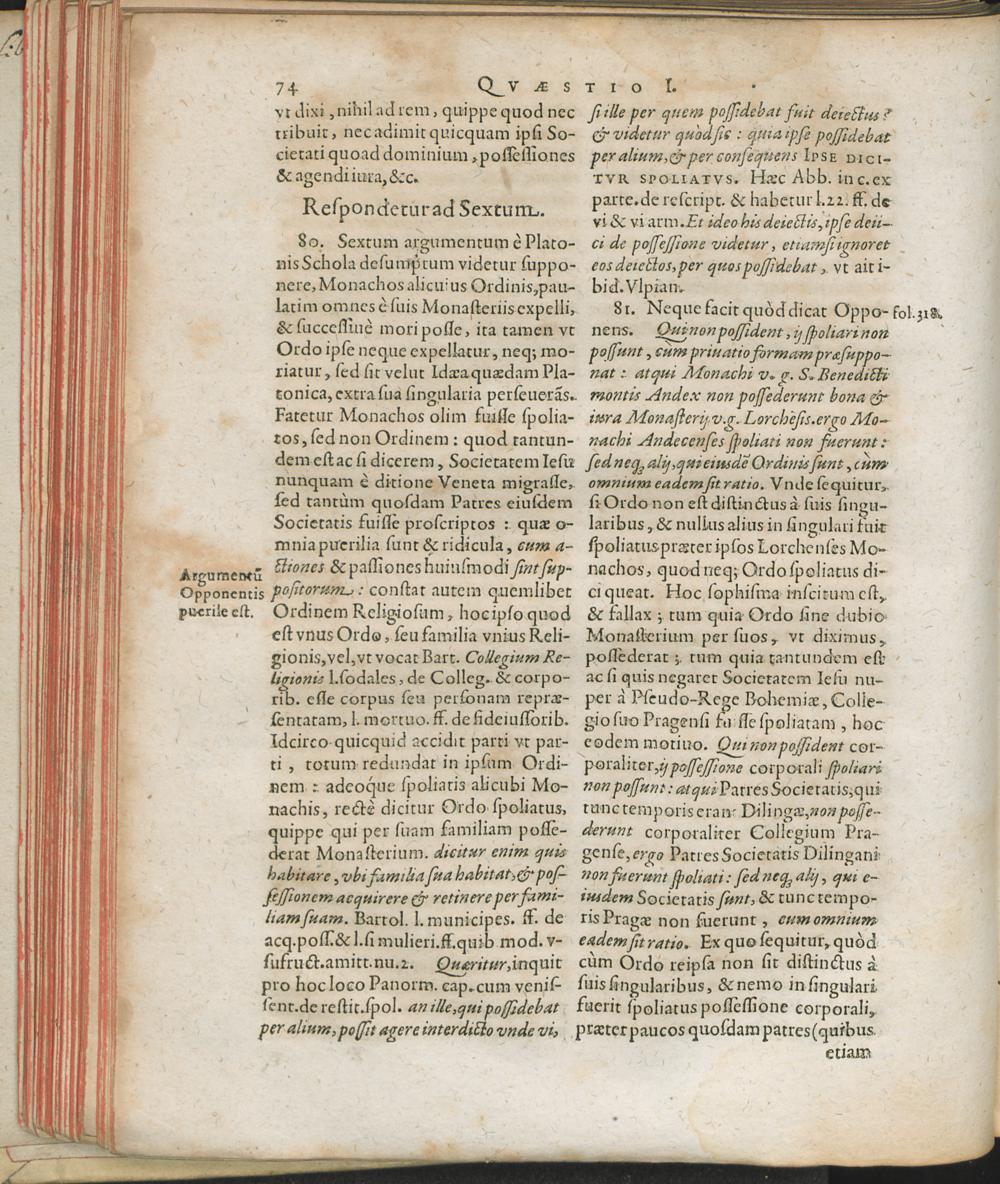 74 QVÆSTIO I.
vt dixi, nihil ad rem, quippe quod nec
tribuit, nec adimit quicquam ipsi So-
cietati quoad dominium, possessiones
& agendi iura, &c.
Respondetur ad Sextum.
80. Sextum argumentum è Plato-
nis Schola desumptum videtur suppo-
nere, Monachos alicuius Ordinis, pau-
latim omnes è suis Monasteriis expelli,
& successiuè mori posse, ita tamen vt
Ordo ipse neque expellatur, neq; mo-
riatur, sed sit velut Idæa quædam Pla-
tonica, extra sua singularia perseuerãs.
Fatetur Monachos olim fuisse spolia-
tos, sed non Ordinem: quod tantun-
dem est ac si dicerem, Societatem Iesu
nunquam è ditione Veneta migrasse,
sed tantùm quosdam Patres eiusdem
Societatis fuisse proscriptos: quæ o-
mnia puerilia sunt & ridicula, cum a-
ctiones & passiones huiusmodi sint sup-
positorum: constat autem quemlibet
Ordinem Religiosum, hoc ipso quod
est vnus Ordo, seu familia vnius Reli-
gionis, vel, vt vocat Bart. Collegium Re-
ligionis l. sodales, de Colleg. & corpo-
rib. esse corpus seu personam repræ-
sentatam, l. mortuo. ff. de fideiussorib.
Idcirco quicquid accidit parti vt par-
ti, totum redundat in ipsum Ordi-
nem: adeoq́ue spoliatis alicubi Mo-
nachis, rectè dicitur Ordo spoliatus,
quippe qui per suam familiam posse-
derat Monasterium. dicitur enim quis
habitare, vbi familia sua habitat, & pos-
sessionem acquirere & retinere per fami-
liam suam. Bartol. l. municipes. ff. de
acq. poss. & l. si mulieri. ff. quib. mod. v-
sufruct. amitt. nu. 2. Quæritur, inquit
pro hoc loco Panorm. cap. cum venis-
sent. de restit. spol. an ille, qui possidebat
per alium, possit agere interdicto vnde vi,
Argumentũ
Opponentis
puerile est.
si ille per quem possidebat fuit deiectus?
& videtur quòd sic: quia ipse possidebat
per alium, & per consequens IPSE DICI-
TVR SPOLIATVS. Hæc Abb. in c. ex
parte. de rescript. & habetur l. 22. ff. de
vi & vi arm. Et ideo his deiectis, ipse deii-
ci de possessione videtur, etiamsi ignoret
eos deiectos, per quos possidebat, vt ait i-
bid. Vlpian.
81. Neque facit quòd dicat Oppo-
nens. Qui non possident, ij spoliari non
possunt, cum priuatio formam præsuppo-
nat: atqui Monachi v. g. S. Benedicti
montis Andex non possederunt bona &
iura Monasterij v. g. Lorchẽsis. ergo Mo-
nachi Andecenses spoliati non fuerunt:
sed neq; alij, qui eiusdẽ Ordinis sunt, cùm
omnium eadem sit ratio. Vnde sequitur,
si Ordo non est distinctus à suis singu-
laribus, & nullus alius in singulari fuit
spoliatus præter ipsos Lorchenses Mo-
nachos, quod neq; Ordo spoliatus di-
ci queat. Hoc sophisma inscitum est,
& fallax; tum quia Ordo sine dubio
Monasterium per suos, vt diximus,
possederat; tum quia tantundem est
ac si quis negaret Societatem Iesu nu-
per à Pseudo-Rege Bohemiæ, Colle-
gio suo Pragensi fuisse spoliatam, hoc
eodem motiuo. Qui non possident cor-
poraliter, ij possessione corporali spoliari
non possunt: atqui Patres Societatis, qui
tunc temporis erant Dilingæ, non posse-
derunt corporaliter Collegium Pra-
gense, ergo Patres Societatis Dilingani
non fuerunt spoliati: sed neq; alij, qui e-
iusdem Societatis sunt, & tunc tempo-
ris Pragæ non fuerunt, cum omnium
eadem sit ratio. Ex quo sequitur, quòd
cùm Ordo reipsa non sit distinctus à
suis singularibus, & nemo in singulari
fuerit spoliatus possessione corporali,
præter paucos quosdam patres (quibus
etiam
fol. 318.